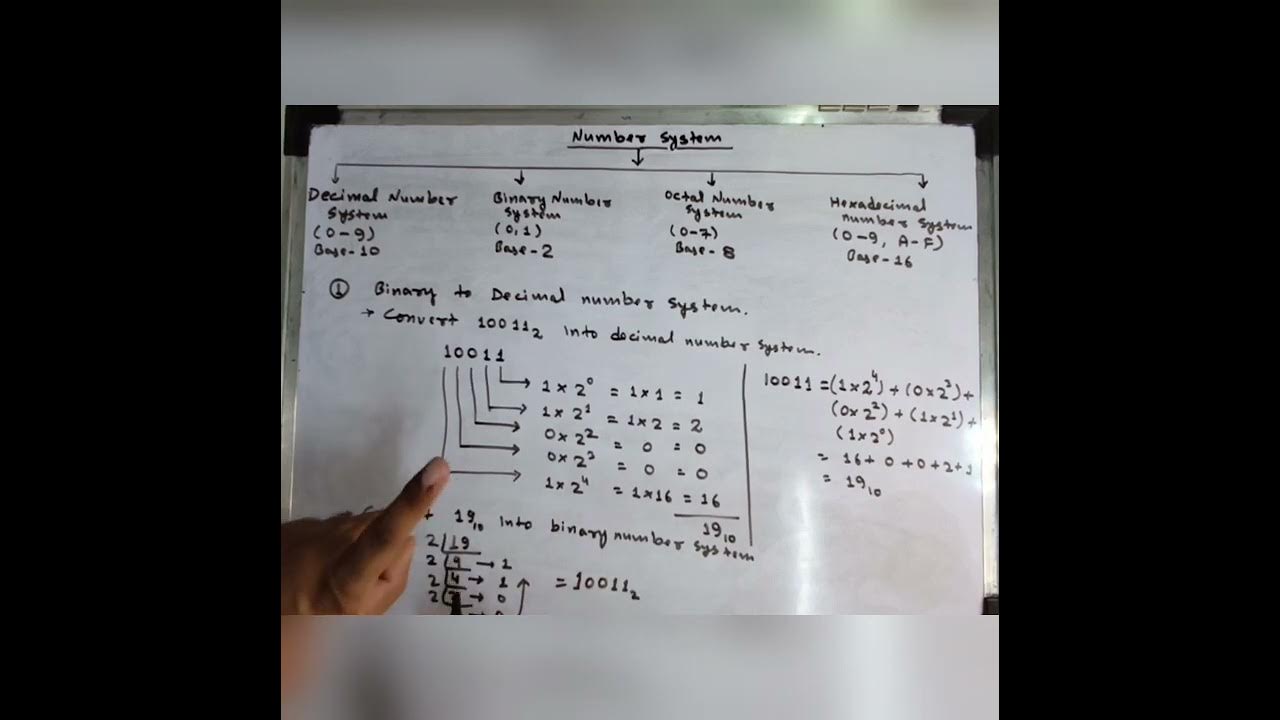 Number System
Decimal Number
System
(0-9)
Base-10
Binary Number
System
(0,1)
Base-2
Octal Number
System
(0-7)
Base-8
Hexadecimal
number System
(0-9, A-F)
Base-16
① Binary to Decimal number System.
→ Convert 10011₂ into decimal number System.
10011
1×2⁰ = 1×1 = 1
1×2¹ = 1×2 = 2
0×2² = 0 = 0
0×2³ = 0 = 0
1×2⁴ = 1×16 = 16
19₁₀
10011 = (1×2⁴) + (0×2³) +
(0×2²) + (1×2¹) +
(1×2⁰)
= 16+ 0 +0+2+1
= 19₁₀
19₁₀ into binary number System
2 19
2 9 → 1
2 4 → 1
2 → 0
= 10011₂